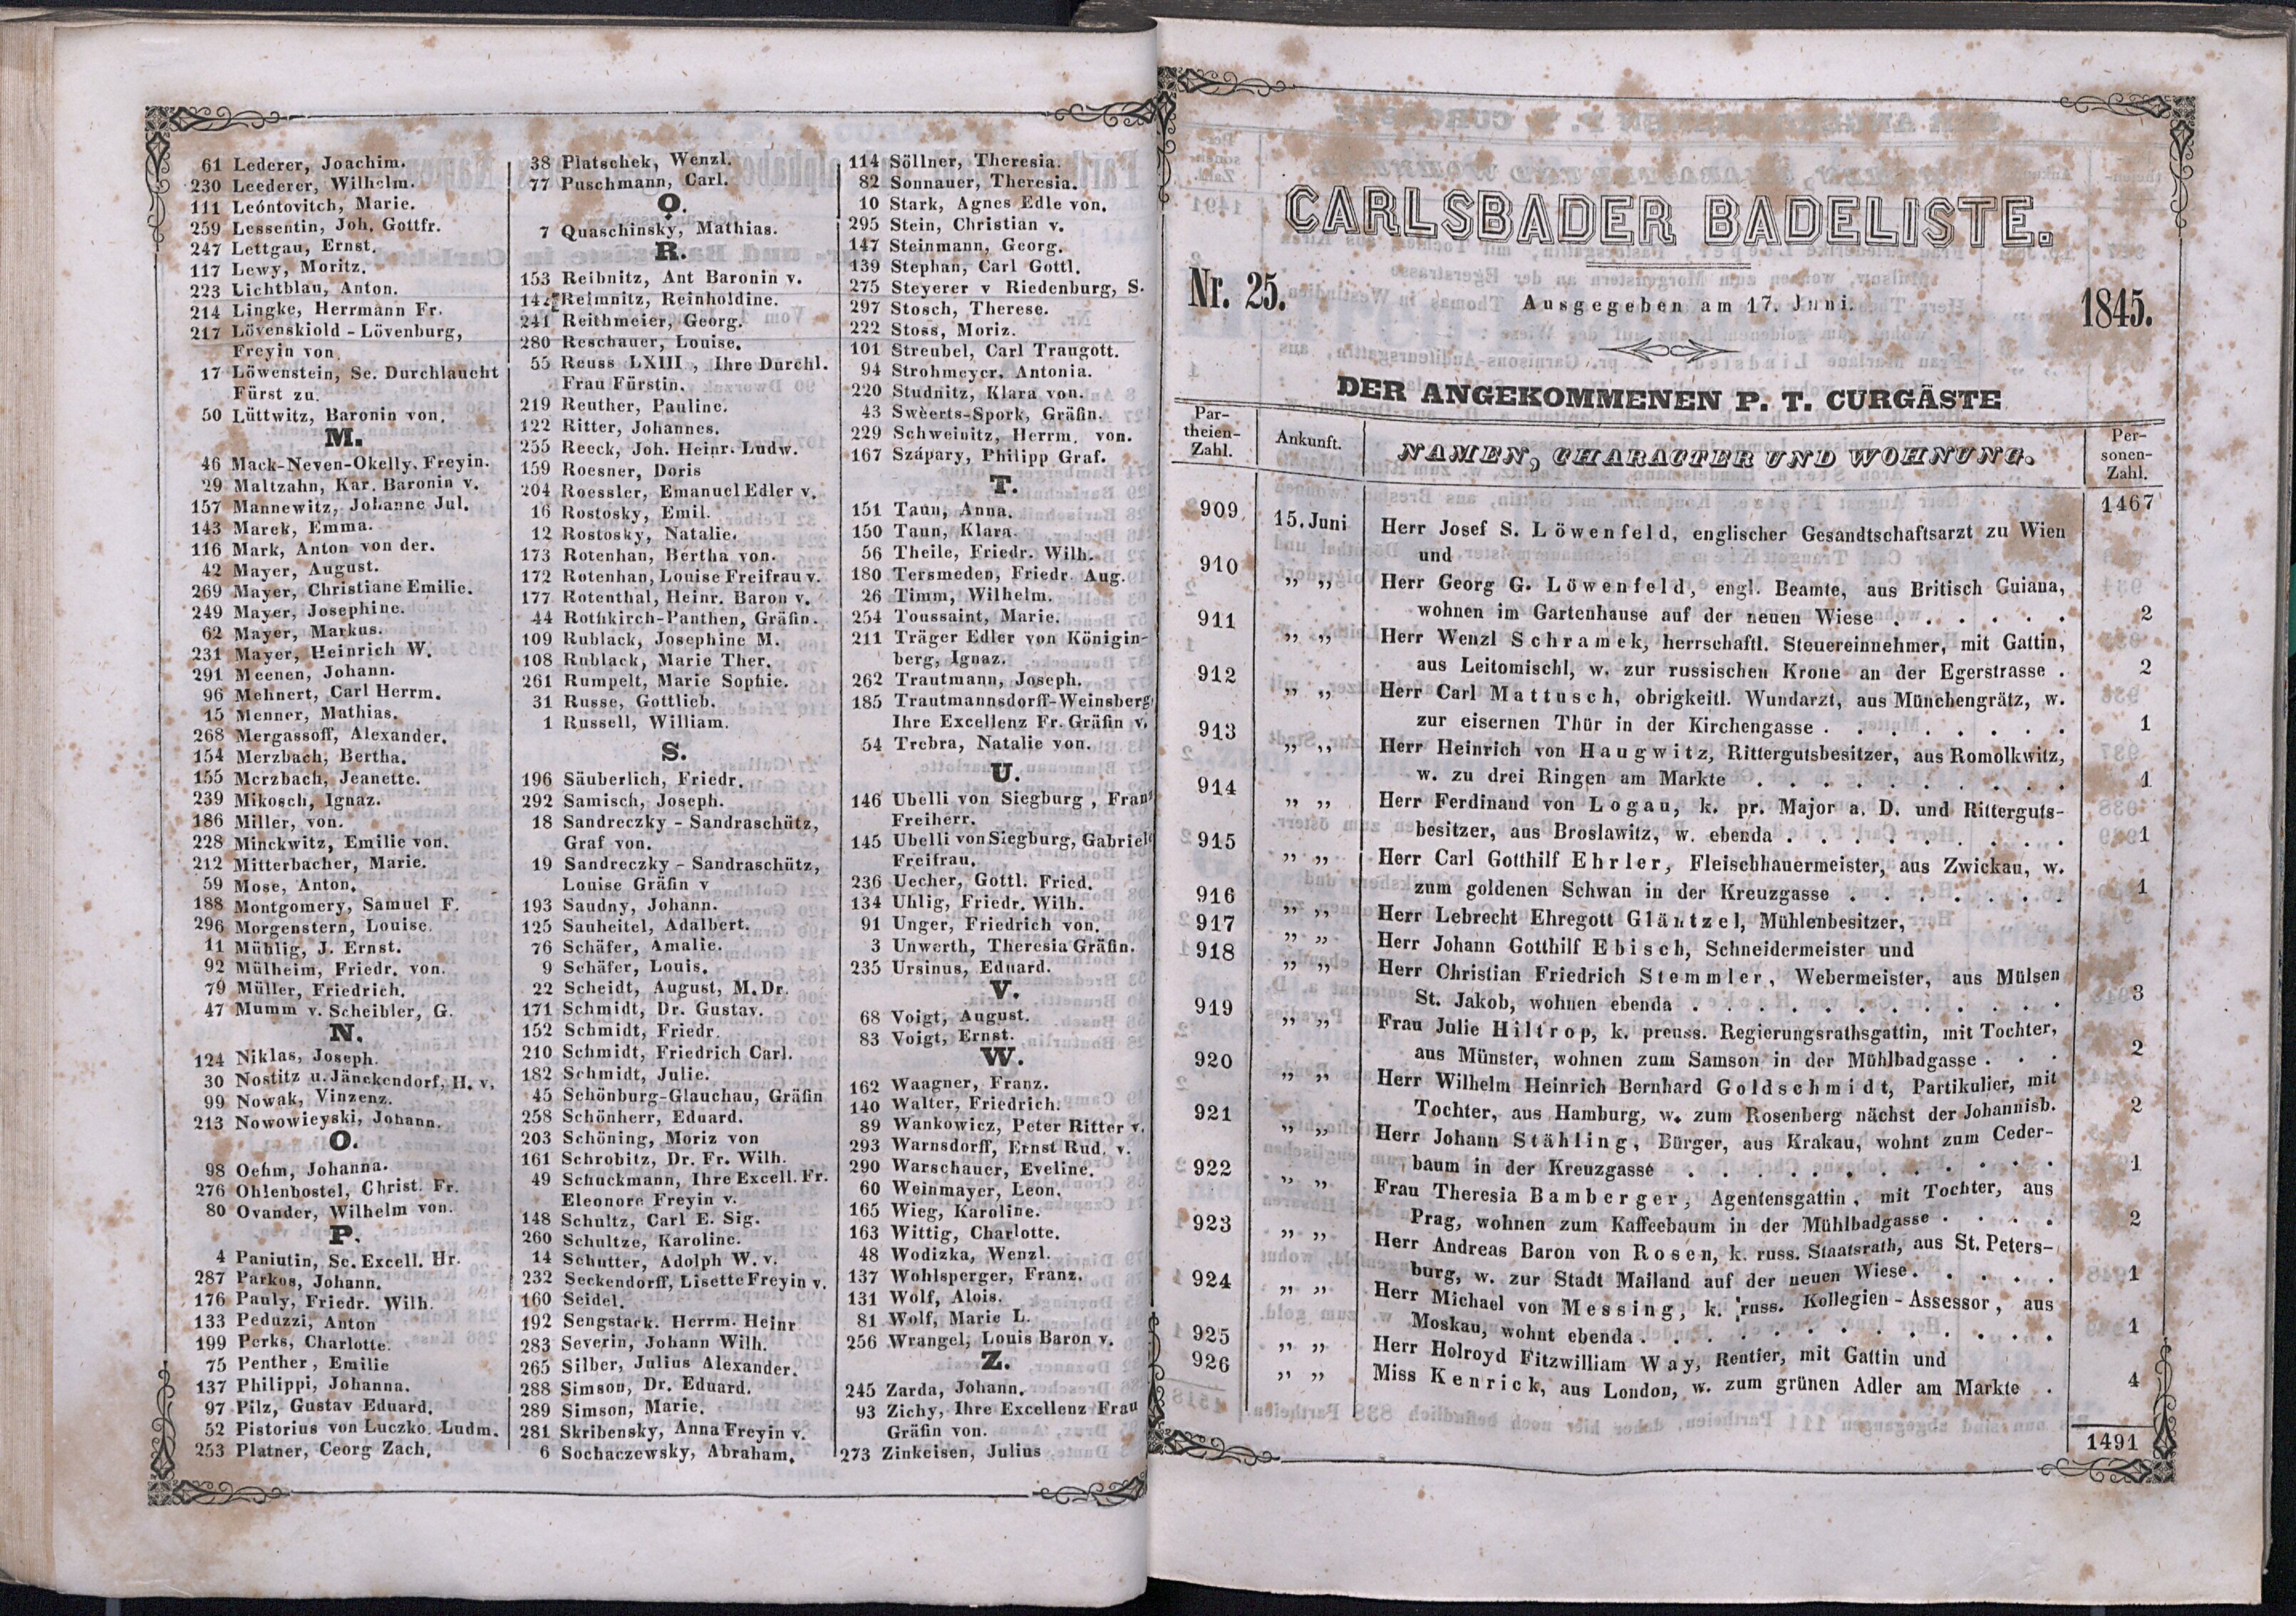 61 Lederer, Joachim.
230 Leederer, Wilhelm.
111 Leóntovitch, Marie.
259 Lessentin, Joh. Gottfr.
247 Lettgau, Ernst.
117 Lewy, Moritz.
223 Lichtblau, Anton.
214 Lingke, Herrmann Fr.
217 Lövenskiold-Lövenburg,
Freyin von
17 Löwenstein, Se. Durchlaucht
Fürst zu.
50 Lüttwitz, Baronin von.
M.
46 Mack-Neven-Okelly, Freyin.
29 Maltzahn, Kar. Baronin v.
157 Mannewitz, Johanne Jul.
143 Marek, Emma.
116 Mark, Anton von der.
42 Mayer, August.
269 Mayer, Christiane Emilie.
249 Mayer, Josephine.
62 Mayer, Markus.
231 Mayer, Heinrich W.
291 Meenen, Johann.
96 Mehnert, Carl Herrm.
15 Menner, Mathias.
268 Mergassoff, Alexander.
154 Merzbach, Bertha.
155 Merzbach, Jeanette.
239 Mikosch, Ignaz.
186 Miller, von.
228 Minckwitz, Emilie von.
212 Mitterbacher, Marie.
59 Mose, Anton.
188 Montgomery, Samuel F.
296 Morgenstern, Louise.
11 Mühlig, J. Ernst.
92 Mülheim, Friedr. von.
79 Müller, Friedrich.
47 Mumm v. Scheibler, G.
N.
124 Niklas, Joseph.
30 Nostitz u. Jänckendorf, H. v.
99 Nowak, Vinzenz.
213 Nowowieyski, Johann.
O.
98 Oehm, Johanna.
276 Ohlenbostel, Christ. Fr.
80 Ovander, Wilhelm von.
P.
4 Paniutin, Se. Excell. Hr.
287 Parkos, Johann.
176 Pauly, Friedr. Wilh.
133 Peduzzi, Anton
199 Perks, Charlotte.
75 Penther, Emilie
137 Philippi, Johanna.
97 Pilz, Gustav Eduard.
52 Pistorius von Luczko. Ludm.
253 Platner, Ceorg Zach.
38 Platschek, Wenzl.
77 Puschmann, Carl.
Q.
7 Quaschinsky, Mathias.
R.
153 Reibnitz, Ant Baronin v.
142 Reimnitz, Reinholdine.
241 Reithmeier, Georg.
280 Reschauer, Louise.
55 Reuss LXIII, Ihre Durchl.
Frau Fürstin.
219 Reuther, Pauline.
122 Ritter, Johannes.
255 Reeck, Joh. Heinr. Ludw.
159 Roesner, Doris
204 Roessler, Emanuel Edler v.
16 Rostosky, Emil.
12 Rostosky, Natalie.
173 Rotenhan, Bertha von.
172 Rotenhan, Louise Freifrau v.
177 Rotenthal, Heinr. Baron v.
44 Rothkirch-Panthen, Gräfin.
109 Rublack, Josephine M.
108 Rublack, Marie Ther.
261 Rumpelt, Marie Sophie.
31 Russe, Gottlieb.
1 Russell, William.
S.
196 Säuberlich, Friedr.
292 Samisch, Joseph.
18 Sandreczky - Sandraschütz,
Graf von.
19 Sandreczky - Sandraschütz,
Louise Gräfin v
193 Saudny, Johann.
125 Sauheitel, Adalbert.
76 Schäfer, Amalie.
9 Schäfer, Louis.
22 Scheidt, August, M. Dr.
171 Schmidt, Dr. Gustav.
152 Schmidt, Friedr.
210 Schmidt, Friedrich Carl.
182 Schmidt, Julie.
45 Schönburg-Glauchau, Gräfin
258 Schönherr, Eduard.
203 Schöning, Moriz von
161 Schrobitz, Dr. Fr. Wilh.
49 Schuckmann, Ihre Excell. Fr.
Eleonore Freyin v.
148 Schultz, Carl E. Sig.
260 Schultze, Karoline.
14 Schutter, Adolph W. v.
232 Seckendorff, Lisette Freyin v.
160 Seidel.
192 Sengstack. Herrm. Heinr.
283 Severin, Johann Wilh.
265 Silber, Julius Alexander.
288 Simson, Dr. Eduard.
289 Simson, Marie.
281 Skribensky, Anna Freyin v.
6 Sochaczewsky, Abraham.
114 Söllner, Theresia.
82 Sonnauer, Theresia.
10 Stark, Agnes Edle von.
295 Stein, Christian v.
147 Steinmann, Georg.
139 Stephan, Carl Gottl.
275 Steyerer v Riedenburg, S.
297 Stosch, Therese.
222 Stoss, Moriz.
101 Streubel, Carl Traugott.
94 Strohmeyer. Antonia.
220 Studnitz, Klara von.
43 Sweerts-Spork, Gräfin.
229 Schweinitz, Herrm. von.
167 Szápary, Philipp Graf.
T.
151 Taun, Anna.
150 Taun, Klara.
56 Theile, Friedr. Wilh.
180 Tersmeden, Friedr. Aug.
26 Timm, Wilhelm.
254 Toussaint, Marie.
211 Träger Edler von Königin-
berg, Ignaz.
262 Trautmann, Joseph.
185 Trautmannsdorff-Weinsberg,
Ihre Excellenz Fr. Gräfin v.
54 Trebra, Natalie von.
U.
146 Ubelli von Siegburg, Franz
Freiherr.
145 Ubelli von Siegburg, Gabriele
Freifrau.
236 Uecher, Gottl. Fried.
134 Uhlig, Friedr. Wilh.
91 Unger, Friedrich von.
3 Unwerth, Theresia Gräfin.
235 Ursinus, Eduard.
V.
68 Voigt, August.
83 Voigt, Ernst.
W.
162 Waagner, Franz.
140 Walter, Friedrich.
89 Wankowicz, Peter Ritter v.
293 Warnsdorff, Ernst Rud. v.
290 Warschauer, Eveline.
60 Weinmayer, Leon.
165 Wieg, Karoline.
163 Wittig, Charlotte.
48 Wodizka, Wenzl.
137 Wohlsperger, Franz.
131 Wolf, Alois.
81 Wolf, Marie L.
256 Wrangel, Louis Baron v.
Z.
245 Zarda, Johann.
93 Zichy, Ihre Excellenz Frau
Gräfin von.
273 Zinkeisen, Julius
CARLSBADER BADELISTE.
Nr. 25. Ausgegeben am 17. Juni. 1845.
DER ANGEKOMMENEN P. T. CURGÄSTE
Par-theien-Zahl. Ankunft. NAMEN, CHARACTER UND WOHNUNG. Per-sonen-Zahl.
1467
909 15. Juni Herr Josef S. Löwenfeld, englischer Gesandtschaftsarzt zu Wien
und
910 „ „ Herr Georg G. Löwenfeld, engl. Beamte, aus Britisch Guiana,
wohnen im Gartenhause auf der neuen Wiese . . . . . . 2
911 „ „ Herr Wenzl Schramek, herrschaftl. Steuereinnehmer, mit Gattin,
aus Leitomischl, w. zur russischen Krone an der Egerstrasse . 2
912 „ „ Herr Carl Mattusch, obrigkeitl. Wundarzt, aus Münchengrätz, w.
zur eisernen Thür in der Kirchengasse . . . . . . . . 1
913 „ „ Herr Heinrich von Haugwitz, Rittergutsbesitzer, aus Romolkwitz,
w. zu drei Ringen am Markte . . . . . . . . . . 1
914 „ „ Herr Ferdinand von Logau, k. pr. Major a. D. und Ritterguts-
besitzer, aus Broslawitz, w. ebenda . . . . . . . . . 1
915 „ „ Herr Carl Gotthilf Ehrler, Fleischhauermeister, aus Zwickau, w.
zum goldenen Schwan in der Kreuzgasse . . . . . . . 1
916 „ „ Herr Lebrecht Ehregott Gläntzel, Mühlenbesitzer,
917 „ „ Herr Johann Gotthilf Ebisch, Schneidermeister und
918 „ „ Herr Christian Friedrich Stemmler, Webermeister, aus Mülsen
St. Jakob, wohnen ebenda . . . . . . . . . . . . 3
919 „ „ Frau Julie Hiltrop, k. preuss. Regierungsrathsgattin, mit Tochter,
aus Münster, wohnen zum Samson in der Mühlbadgasse . . . 2
920 „ „ Herr Wilhelm Heinrich Bernhard Goldschmidt, Partikulier, mit
Tochter, aus Hamburg, w. zum Rosenberg nächst der Johannisb. 2
921 „ „ Herr Johann Stähling, Bürger, aus Krakau, wohnt zum Ceder-
baum in der Kreuzgasse . . . . . . . . . . . . 1
922 „ „ Frau Theresia Bamberger, Agentensgattin, mit Tochter, aus
Prag, wohnen zum Kaffeebaum in der Mühlbadgasse . . . . 2
923 „ „ Herr Andreas Baron von Rosen, k. russ. Staatsrath, aus St. Peters-
burg, w. zur Stadt Mailand auf der neuen Wiese . . . . . 1
924 „ „ Herr Michael von Messing, k. russ. Kollegien-Assessor, aus
Moskau, wohnt ebenda . . . . . . . . . . . . . 1
925 „ „ Herr Holroyd Fitzwilliam Way, Rentier, mit Gattin und
926 „ „ Miss Kenrick, aus London, w. zum grünen Adler am Markte . 4
1491